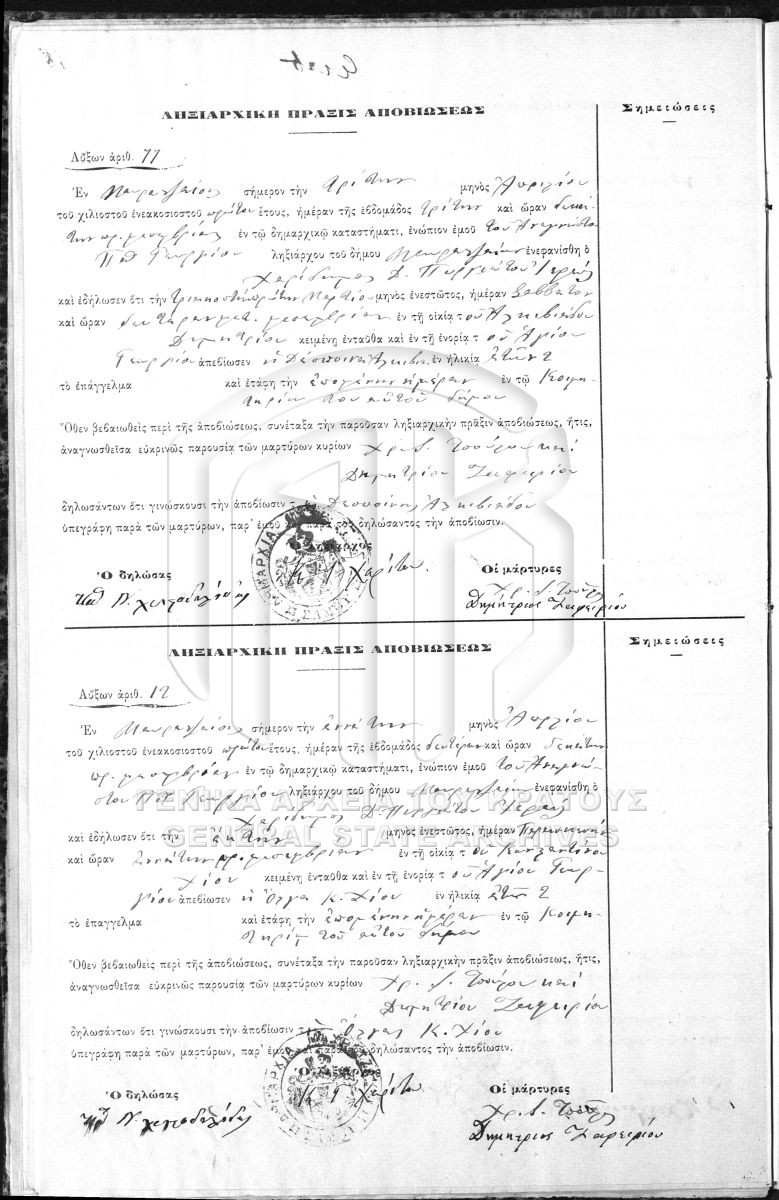 ΛΗΞΙΑΡΧΙΚΗ ΠΡΑΞΙΣ ΑΠΟΒΙΩΣΕΩΣ
Σημειώσεις
Αὔξων ἀριθ. 11
Ἐν σήμερον τὴν τρίτην μηνὸς Ἀπριλίου
τοῦ χιλιοστοῦ ἐνεακοσιοστοῦ πρώτου ἔτους, ἡμέραν τῆς ἑβδομάδος τρίτην καὶ ὥραν δεκά-
την π.μεσημβρίας ἐν τῷ δημαρχικῷ καταστήματι, ἐνώπιον ἐμοῦ τοῦ
Γεωργίου ληξιάρχου τοῦ δήμου ἐνεφανίσθη ὁ
Χαρίδημος Δ. ἱερεὺς
καὶ ἐδήλωσεν ὅτι τὴν τριακοστὴν πρώτην Μαρτίου μηνὸς ἐνεστῶτος, ἡμέραν Σάββατον
καὶ ὥραν δευτέραν μετὰ μεσημβρίαν ἐν τῇ οἰκίᾳ τοῦ Ἀλκιβιάδου
Δημητρίου κειμένῃ ἐνταῦθα καὶ ἐν τῇ ἐνορίᾳ τοῦ Ἁγίου
Γεωργίου ἀπεβίωσεν ἡ Δέσποινα Ἀλκιβιάδου ἐν ἡλικίᾳ ἐτῶν 2
τὸ ἐπάγγελμα καὶ ἐτάφη τὴν ἑπομένην ἡμέραν ἐν τῷ Κοιμη-
τηρίῳ τοῦ αὐτοῦ δήμου
Ὅθεν βεβαιωθεὶς περὶ τῆς ἀποβιώσεως, συνέταξα τὴν παροῦσαν ληξιαρχικὴν πρᾶξιν ἀποβιώσεως, ἥτις,
ἀναγνωσθεῖσα εὐκρινῶς παρουσίᾳ τῶν μαρτύρων κυρίων Χρ. Δ. καὶ
Δημητρίου Ζαφειρίου
δηλωσάντων ὅτι γινώσκουσι τὴν ἀποβίωσιν τῆς Δεσποίνης Ἀλκιβιάδου
ὑπεγράφη παρὰ τῶν μαρτύρων, παρ' ἐμοῦ καὶ παρὰ τοῦ δηλώσαντος τὴν ἀποβίωσιν.
Ὁ Ληξίαρχος
Ὁ δηλώσας
Οἱ μάρτυρες
Δημήτριος Ζαφειρίου
ΛΗΞΙΑΡΧΙΚΗ ΠΡΑΞΙΣ ΑΠΟΒΙΩΣΕΩΣ
Σημειώσεις
Αὔξων ἀριθ. 12
Ἐν σήμερον τὴν ἐννάτην μηνὸς Ἀπριλίου
τοῦ χιλιοστοῦ ἐνεακοσιοστοῦ πρώτου ἔτους, ἡμέραν τῆς ἑβδομάδος δευτέραν καὶ ὥραν δεκάτην
πρ. μεσημβρίας ἐν τῷ δημαρχικῷ καταστήματι, ἐνώπιον ἐμοῦ τοῦ
Γεωργίου ληξιάρχου τοῦ δήμου ἐνεφανίσθη ὁ
Χαρίδημος Δ. ἱερεὺς
καὶ ἐδήλωσεν ὅτι τὴν ἕκτην μηνὸς ἐνεστῶτος, ἡμέραν Παρασκευὴν
καὶ ὥραν ἐννάτην προμεσημβρίαν ἐν τῇ οἰκίᾳ τοῦ Κωνσταντίνου
Χίου κειμένῃ ἐνταῦθα καὶ ἐν τῇ ἐνορίᾳ τοῦ Ἁγίου Γεωρ-
γίου ἀπεβίωσεν ἡ Ὄλγα Κ. Χίου ἐν ἡλικίᾳ ἐτῶν 2
τὸ ἐπάγγελμα καὶ ἐτάφη τὴν ἑπομένην ἡμέραν ἐν τῷ Κοιμη-
τηρίῳ τοῦ αὐτοῦ δήμου
Ὅθεν βεβαιωθεὶς περὶ τῆς ἀποβιώσεως, συνέταξα τὴν παροῦσαν ληξιαρχικὴν πρᾶξιν ἀποβιώσεως, ἥτις,
ἀναγνωσθεῖσα εὐκρινῶς παρουσίᾳ τῶν μαρτύρων κυρίων Χρ. Δ. καὶ
Δημητρίου Ζαφειρίου
δηλωσάντων ὅτι γινώσκουσι τὴν ἀποβίωσιν τῆς Ὄλγας Κ. Χίου
ὑπεγράφη παρὰ τῶν μαρτύρων, παρ' ἐμοῦ καὶ παρὰ τοῦ δηλώσαντος τὴν ἀποβίωσιν.
Ὁ Ληξίαρχος
Ὁ δηλώσας
Οἱ μάρτυρες
Δημήτριος Ζαφειρίου
ΓΕΝΙΚΑ ΑΡΧΕΙΑ ΤΟΥ ΚΡΑΤΟΥΣ
GENERAL STATE ARCHIVES